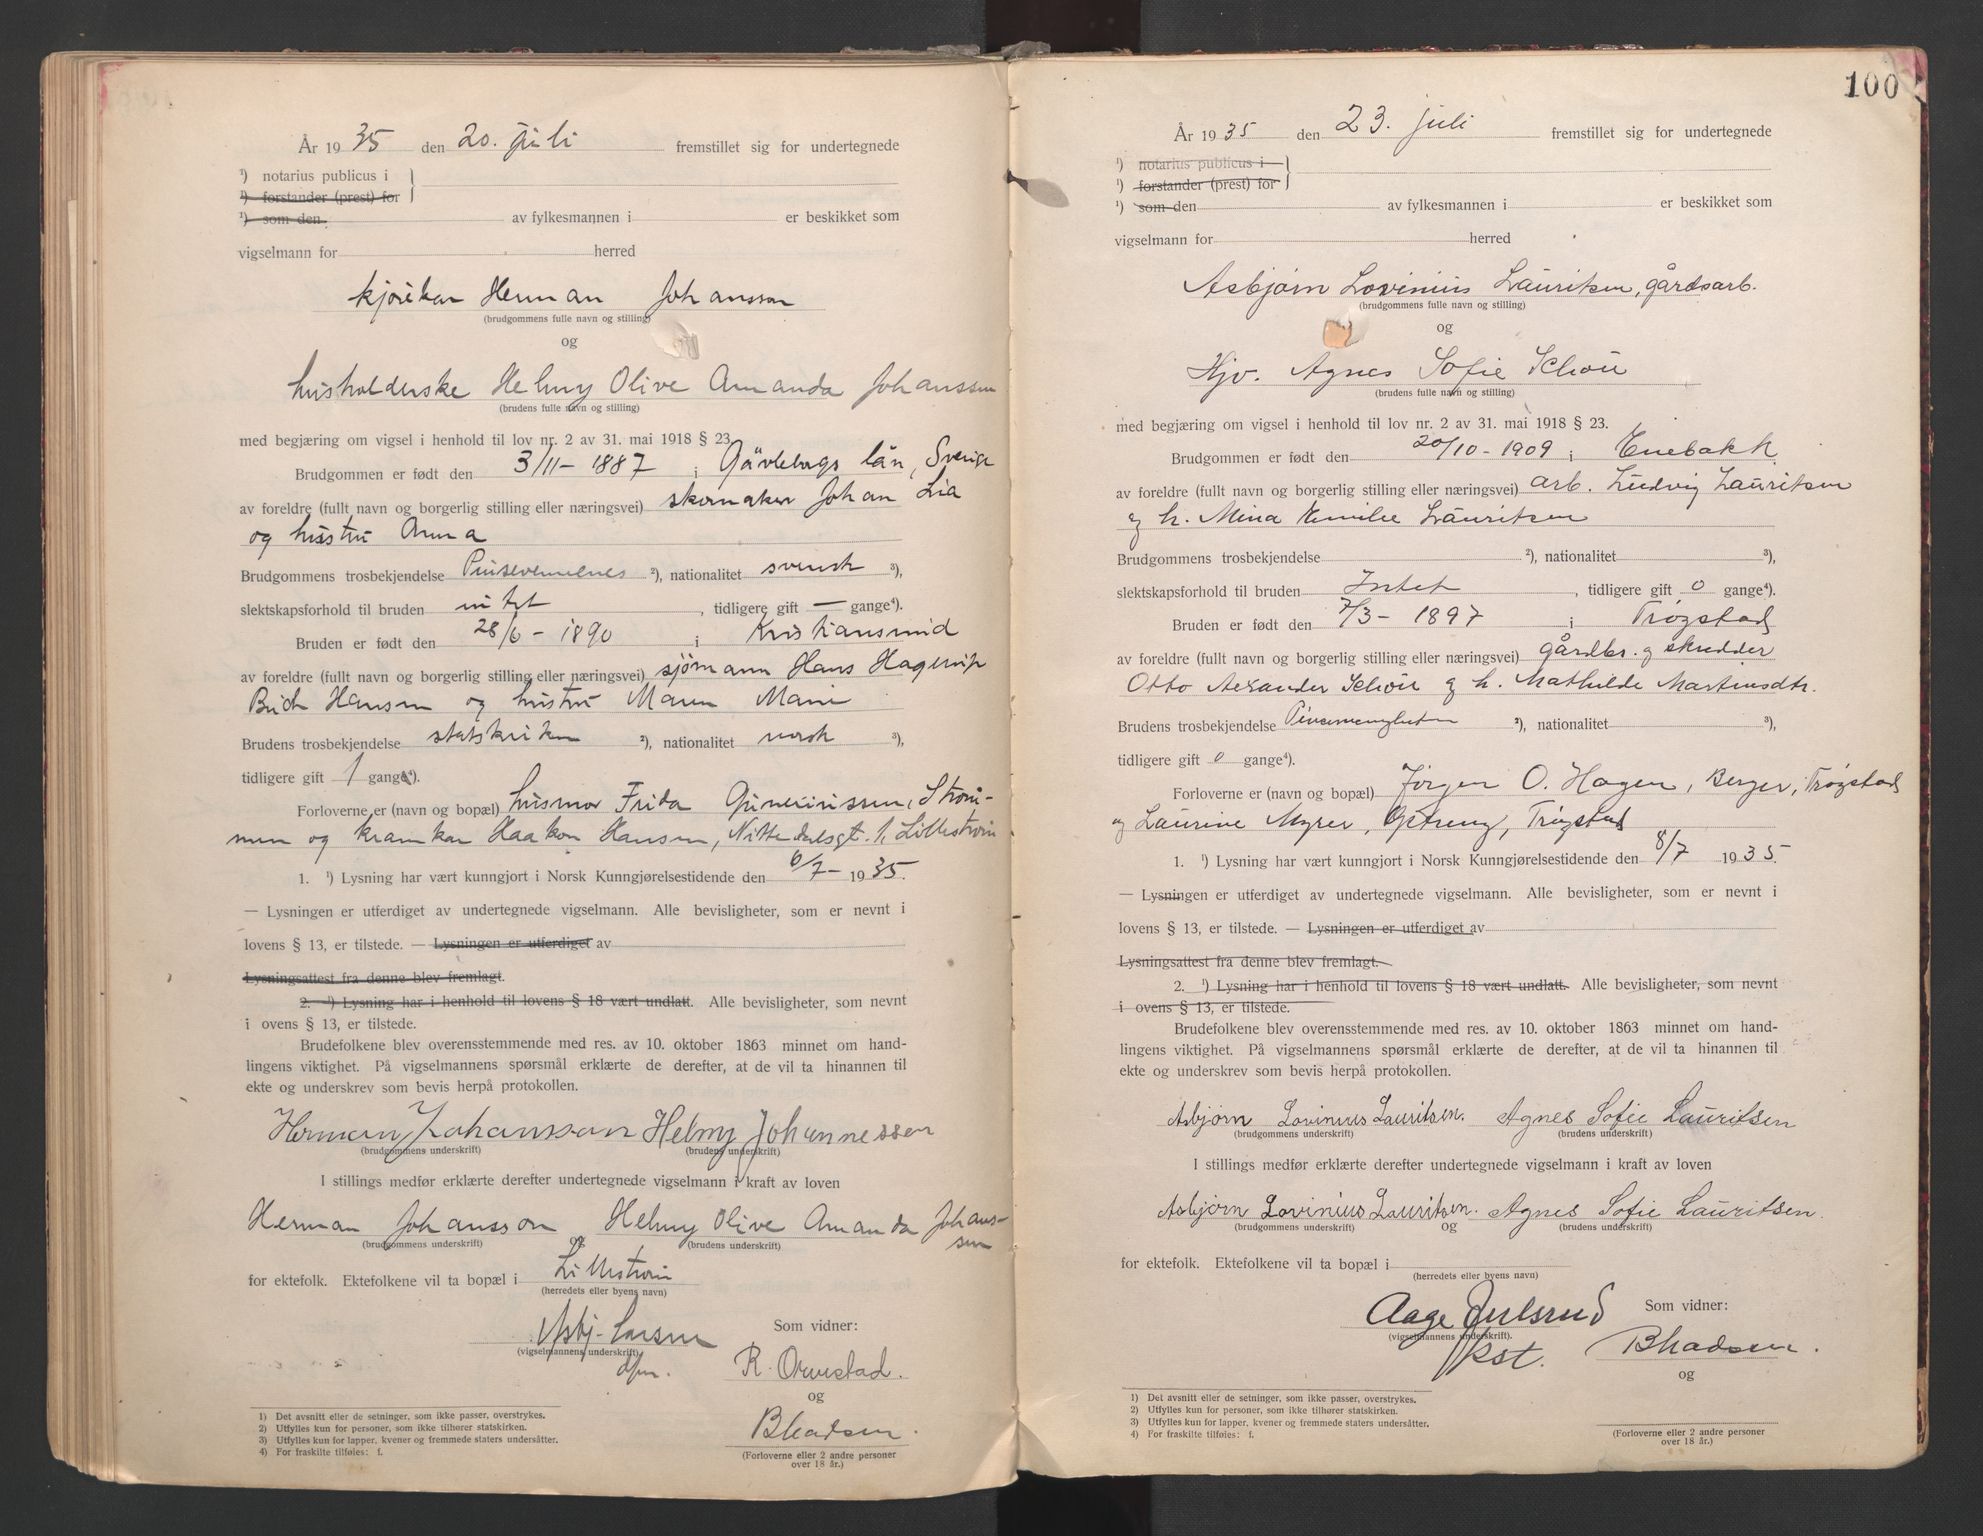 År 1935 den 20. juli fremstillet sig for undertegnede
¹) notarius publicus i
¹) forstander (prest) for
¹) som den av fylkesmannen i er beskikket som
vigselmann for herred
Herman Johansson
(brudgommens fulle navn og stilling)
og
husholderske Helmy Olive Amanda Johanssen
(brudens fulle navn og stilling)
med begjæring om vigsel i henhold til lov nr. 2 av 31. mai 1918 § 23.
Brudgommen er født den 3/11 - 1887 i Gävleborgs län, Sverige
av foreldre (fullt navn og borgerlig stilling eller næringsvei) skomaker Johan Lia
og hustru Anna
Brudgommens trosbekjendelse Pinsevennenes ²), nationalitet svensk ³),
slektskapsforhold til bruden intet, tidligere gift — gange⁴).
Bruden er født den 28/6 - 1890 i Kristiansund
av foreldre (fullt navn og borgerlig stilling eller næringsvei) sjömann Hans Hagerup
Hansen og hustru Maren Marie
Brudens trosbekjendelse statskirken ²), nationalitet norsk ³),
tidligere gift 1 gang⁴).
Forloverne er (navn og bopæl) husmor Frida Strøm-
men og Haakon Hansen, Nittedalsgt. 1, Lillestrøm
1. ¹) Lysning har vært kunngjort i Norsk Kunngjørelsestidende den 6/7 - 1935.
— Lysningen er utferdiget av undertegnede vigselmann. Alle bevisligheter, som er nevnt i
lovens § 13, er tilstede. — Lysningen er utferdiget av
Lysningsattest fra denne blev fremlagt.
2. ¹) Lysning har i henhold til lovens § 18 vært undlatt. Alle bevisligheter, som nevnt
i ovens § 13, er tilstede.
Brudefolkene blev overensstemmende med res. av 10. oktober 1863 minnet om hand-
lingens viktighet. På vigselmannens spørsmål erklærte de derefter, at de vil ta hinannen til
ekte og underskrev som bevis herpå protokollen.
Herman Johansson Helmy Johannessen
(brudgommens underskrift) (brudens underskrift)
I stillings medfør erklærte derefter undertegnede vigselmann i kraft av loven
Herman Johansson Helmy Olive Amanda Johans-
sen
(brudgommens underskrift) og (brudens underskrift)
for ektefolk. Ektefolkene vil ta bopæl i Lillestrøm
(herredets eller byens navn)
Asbj. Larsen
(vigselmannens underskrift)
Som vidner:
R. Ornestad.
og
B Madsen.
(Forloverne eller 2 andre personer
over 18 år.)
1) Det avsnitt eller de setninger, som ikke passer, overstrykes.
2) Utfylles kun for personer, som ikke tilhører statskirken.
3) Utfylles kun for lapper, kvener og fremmede staters undersåtter.
4) For fraskilte tilføies: f.
100
År 1935 den 23. juli fremstillet sig for undertegnede
¹) notarius publicus i
¹) forstander (prest) for
¹) som den av fylkesmannen i er beskikket som
vigselmann for herred
Asbjørn Lovinius Lauritsen, gårdsarb.
(brudgommens fulle navn og stilling)
og
Hjv. Agnes Sofie Schou
(brudens fulle navn og stilling)
med begjæring om vigsel i henhold til lov nr. 2 av 31. mai 1918 § 23.
Brudgommen er født den 20/10 - 1909 i Enebakk
av foreldre (fullt navn og borgerlig stilling eller næringsvei) arb. Ludvig Lauritsen
og h. Mina Emilie Lauritsen
Brudgommens trosbekjendelse ²), nationalitet ³),
slektskapsforhold til bruden Intet, tidligere gift 0 gange⁴).
Bruden er født den 7/3 - 1897 i Trøgstad
av foreldre (fullt navn og borgerlig stilling eller næringsvei) gårdbr. og skredder
Otto Alexander Schou og h. Mathilde Martinsdtr.
Brudens trosbekjendelse ²), nationalitet ³),
tidligere gift 0 gange⁴).
Forloverne er (navn og bopæl) Jørgen O. Hagen, Berger, Trøgstad
og Laurine Myrer, Opstreng, Trøgstad
1. ¹) Lysning har vært kunngjort i Norsk Kunngjørelsestidende den 8/7 1935.
— Lysningen er utferdiget av undertegnede vigselmann. Alle bevisligheter, som er nevnt i
lovens § 13, er tilstede. — Lysningen er utferdiget av
Lysningsattest fra denne blev fremlagt.
2. ¹) Lysning har i henhold til lovens § 18 vært undlatt. Alle bevisligheter, som nevnt
i ovens § 13, er tilstede.
Brudefolkene blev overensstemmende med res. av 10. oktober 1863 minnet om hand-
lingens viktighet. På vigselmannens spørsmål erklærte de derefter, at de vil ta hinannen til
ekte og underskrev som bevis herpå protokollen.
Asbjørn Lovinius Lauritsen. Agnes Sofie Lauritsen
(brudgommens underskrift) (brudens underskrift)
I stillings medfør erklærte derefter undertegnede vigselmann i kraft av loven
Asbjørn Lovinius Lauritsen. Agnes Sofie Lauritsen.
(brudgommens underskrift) og (brudens underskrift)
for ektefolk. Ektefolkene vil ta bopæl i
(herredets eller byens navn)
Aage Julsrud
(vigselmannens underskrift).
kst.
Som vidner:
B Madsen.
og
(Forloverne eller 2 andre personer
over 18 år.)
1) Det avsnitt eller de setninger, som ikke passer, overstrykes.
2) Utfylles kun for personer, som ikke tilhører statskirken.
3) Utfylles kun for lapper, kvener og fremmede staters undersåtter.
4) For fraskilte tilføies: f.